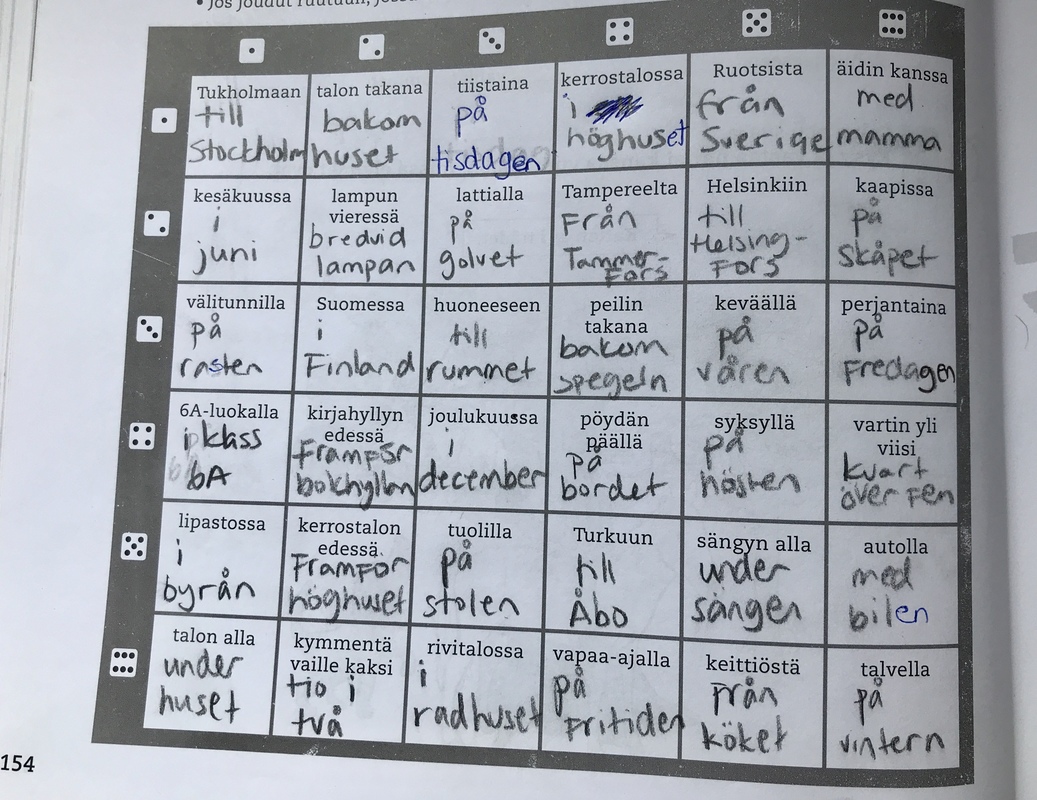 • Jos joudut ruutuun, joss
Tukholmaan
till
Stockholm
talon takana
bakom
huset
tiistaina
på
tisdagen
kerrostalossa
i
höghuset
Ruotsista
från
Sverige
äidin kanssa
med
mamma
kesäkuussa
i
juni
lampun
vieressä
bredvid
lampan
lattialla
på
golvet
Tampereelta
Från
Tammer-
Fors
Helsinkiin
till
Helsing-
Fors
kaapissa
på
skåpet
välitunnilla
på
rasten
Suomessa
i
Finland
huoneeseen
till
rummet
peilin
takana
bakom
spegeln
keväällä
på
våren
perjantaina
på
Fredagen
6A-luokalla
i klass
6A
kirjahyllyn
edessä
Framför
bokhyllan
joulukuussa
i
december
pöydän
päällä
på
bordet
syksyllä
på
hösten
vartin yli
viisi
kvart
över Fem
lipastossa
i
byrån
kerrostalon
edessä
Framför
höghuset
tuolilla
på
stolen
Turkuun
till
Åbo
sängyn alla
under
sängen
autolla
med
bilen
talon alla
under
huset
kymmentä
vaille kaksi
tio i
två
rivitalossa
i
radhuset
vapaa-ajalla
på
Fritiden
keittiöstä
Från
köket
talvella
på
vintern
154